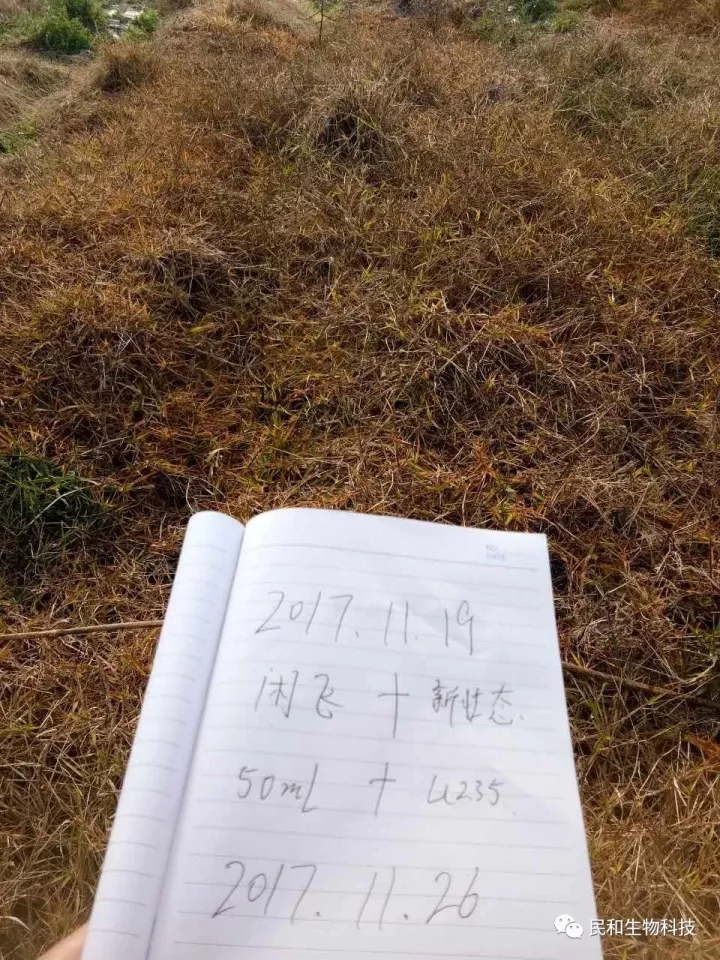 NO.
DATE
2017.11.19
闲飞 + 新状态.
50ml + U235.
2017.11.26
民和生物科技